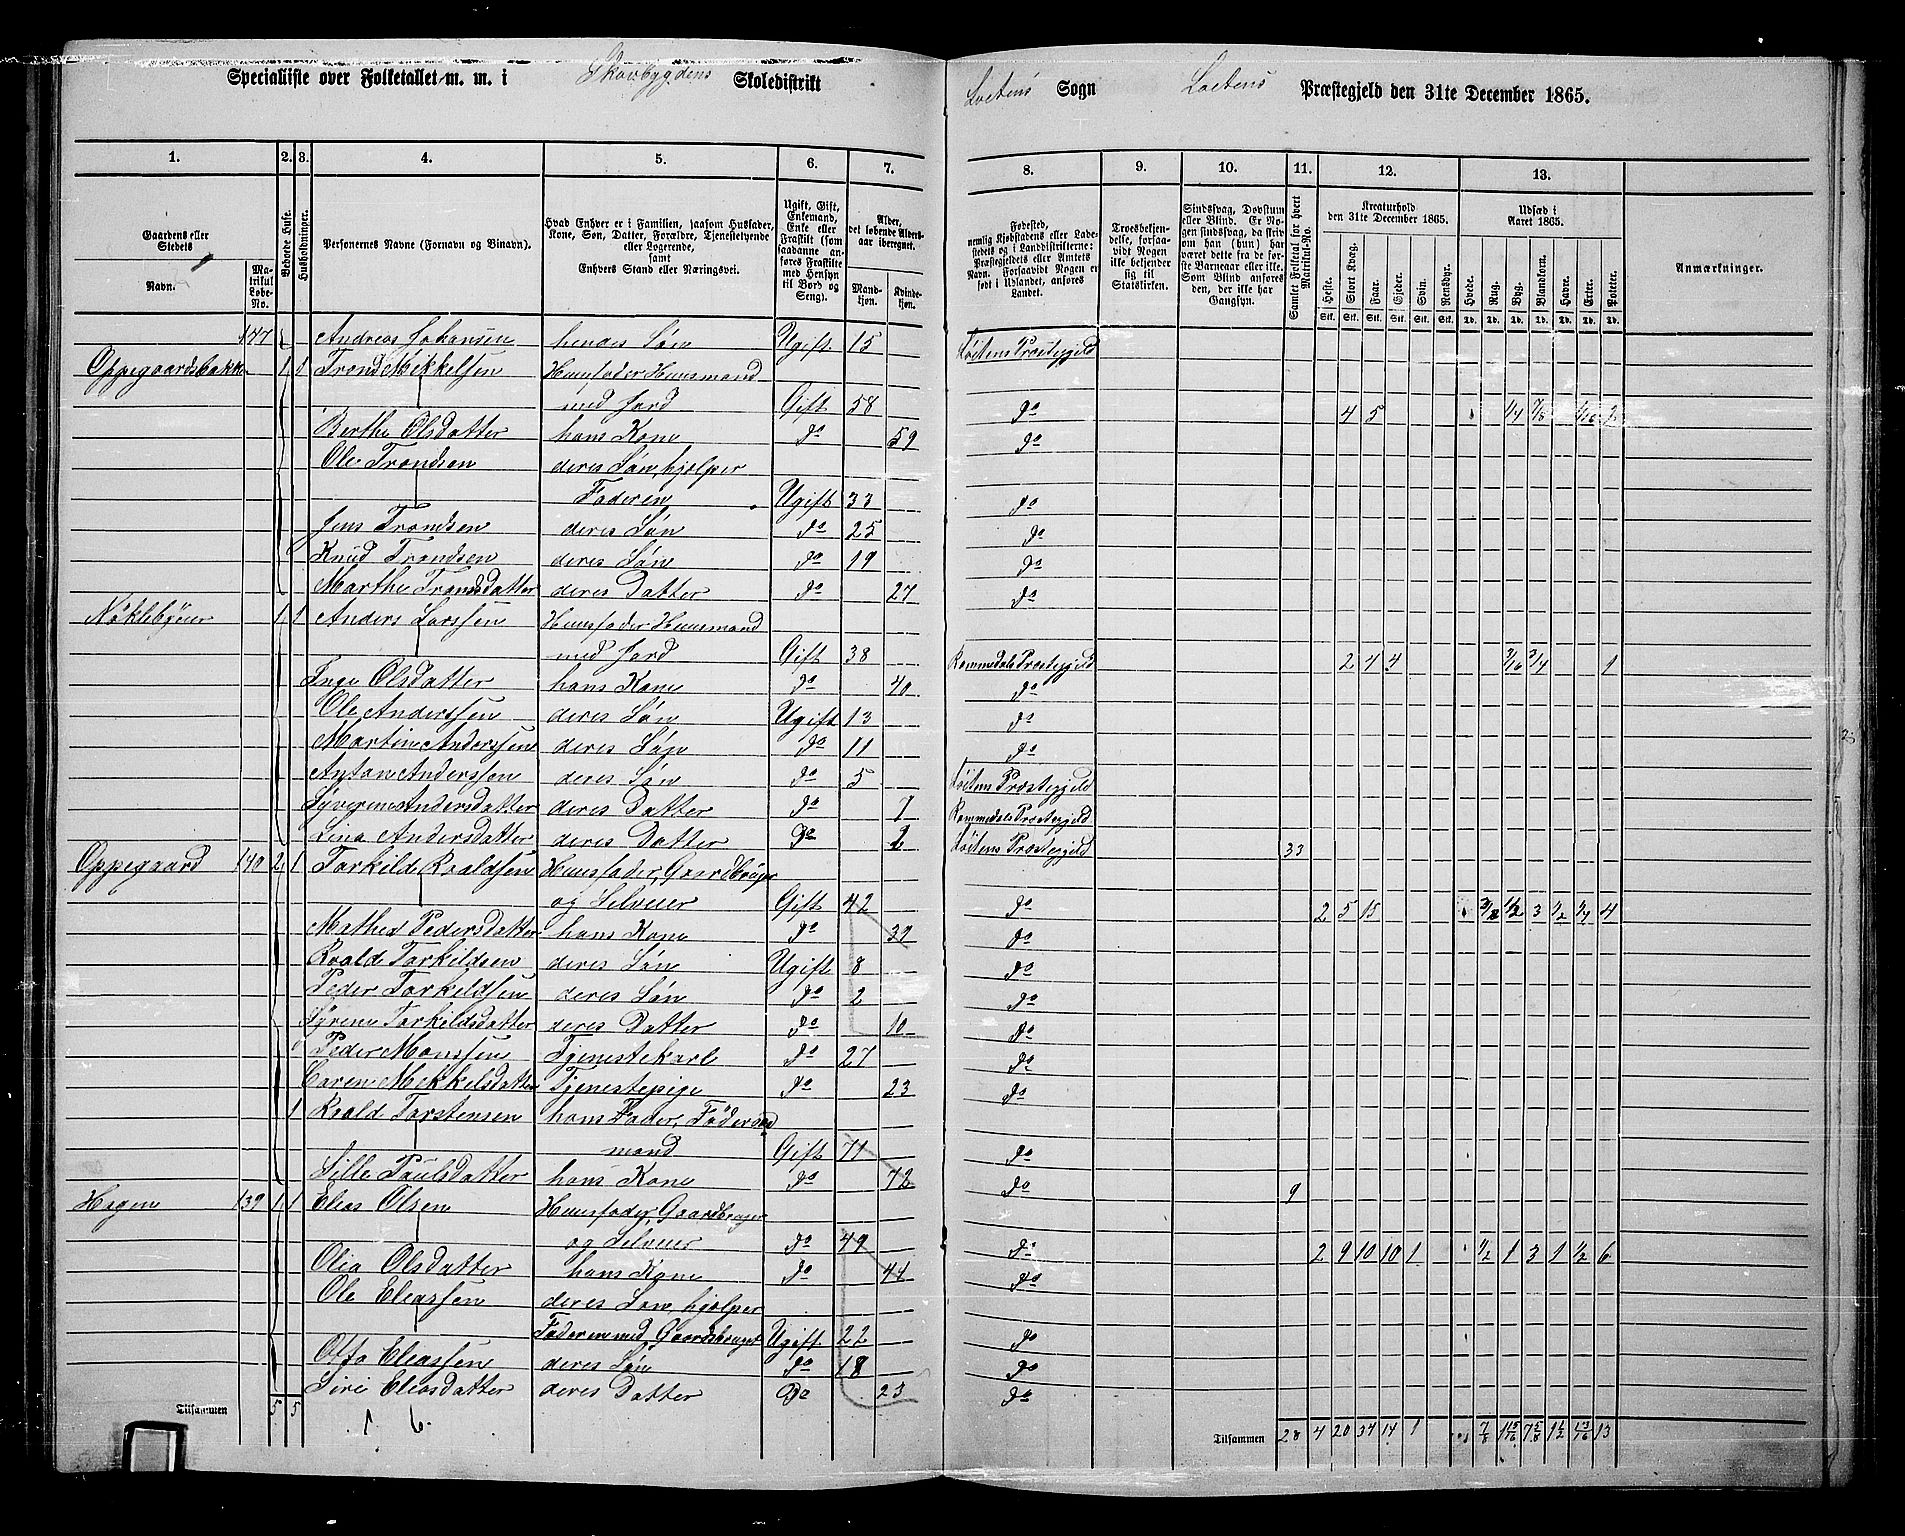 Specialliste over Folketallet m. m. i Skovbygdens Skoledistrikt Loitens Sogn Loitens Præstegjeld den 31te December 1865.
1. 2. 3. 4. 5. 6. 7. 8. 9. 10. 11. 12. 13.
Gaardens eller Stedets Navn. Matrikul Løbe-No. Bebodde Huse. Husholdninger. Personernes Navne (Fornavn og Binavn). Hvad Enhver er i Familien, saasom Husfader, Kone, Søn, Datter, Forældre, Tjenestetyende eller Logerende, samt Enhvers Stand eller Næringsvei. Ugift, Gift, Enkemand, Enke eller Fraskilt (som saadanne anføres Fraskilte med Hensyn til Bord og Seng). Alder, det løbende Aldersaar iberegnet. Mandkjøn. Kvindekjøn. Fødested, nemlig Kjøbstadens eller Ladestedets og i Landdistrikterne: Præstegjeldets eller Amtets Navn. Forsaavidt Nogen er født i Udlandet, anføres Landet. Troesbekjendelse, forsaavidt Nogen ikke bekjender sig til Statskirken. Sindssvag, Døvstum eller Blind. Er Nogen sindssvag, da skriv om han (hun) har været dette fra de første Barneaar eller ikke. Som Blind anføres den, der ikke har Gangsyn. Samlet Folketal for hvert Matrikul-No. Kreaturhold den 31te December 1865. Heste. Stort Kvæg. Faar. Gjeder. Svin. Rensdyr. Udsæd i Aaret 1865. Hvede. Rug. Byg. Blandkorn. Havre. Erter. Poteter. Anmærkninger.
147 Andreas Johansen hendes Søn Ugift 15 Löitens Præstegjeld
Oppegaardsbakke 1 1 Trond Mikkelsen Huusfader Huusmand
med Jord Gift 58 do 4 5 1/4 7/8 1/16 2
Berthe Olsdatter hans Kone do 59 do
Ole Trondsen deres Søn, hjælper
Faderen Ugift 33 do
Jens Trondsen deres Søn do 25 do
Knud Trondsen deres Søn do 19 do
Marthe Trondsdatter deres Datter do 27 do
Nöklebyeier 1 1 Anders Larssen Huusfader Huusmand
med Jord Gift 38 Rommedals Præstegjeld 2 4 4 3/16 3/4 1
Inge Olsdatter hans Kone do 40 do
Ole Anderssen deres Søn Ugift 13 do
Martin Anderssen deres Søn do 11 do
Anton Anderssen deres Søn do 5 Löitens Præstegjeld
Syverine Andersdatter deres Datter do 7 Rommedals Præstegjeld
Lina Andersdatter deres Datter do 2 Löitens Præstegjeld 33
Oppegaard 140 2 1 Torkild Roaldsen Huusfader, Gaardbruger
og Selveier Gift 42 do 2 5 15 3/8 1/2 3 1/2 1/4 4
Mathea Pedersdatter hans Kone do 39 do
Roald Torkildsen deres Søn Ugift 8 do
Peder Torkildsen deres Søn do 2 do
Syrene Torkildsdatter deres Datter do 10 do
Peder Monssen Tjenestekarl do 27 do
Caren Mikkelsdatter Tjenestepige do 23 do
1 Roald Torstensen hans Fader, Föderaads
mand Gift 71 do
Sille Paulsdatter hans Kone do 72 do 9
Hagen 139 1 1 Elias Olsen Huusfader, Gaardbruger
og Selveier do 49 do 2 9 10 10 1 1/2 1 3 1 1/2 6
Olia Olsdatter hans Kone do 44 do
Ole Eliassen deres Søn, hjælper
Faderen med Gaardsbruget Ugift 22 do
Otto Eliassen deres Søn do 18 do
Siri Eliasdatter deres Datter do 23 do
Tilsammen 5 5 Tilsammen 28 4 20 34 14 1 7/8 1 15/16 7 5/8 1 1/2 13/16 13
1 6.